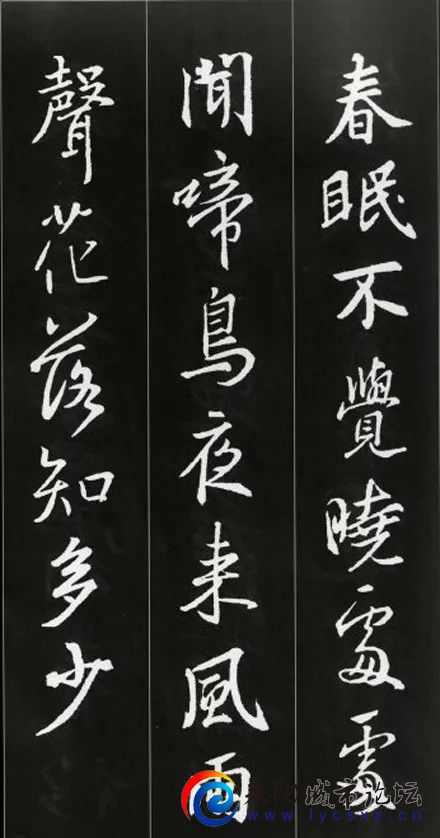 春眠不覺曉處處
聞啼鳥夜来風雨
聲花落知多少
城市论坛
www.lycsxx.cn